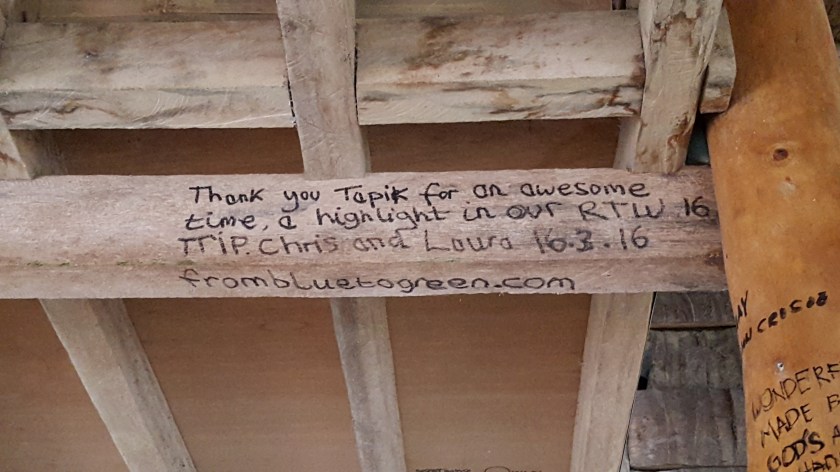 Thank you Tapik for an awesome
time, a highlight in our RTW 16
TRIP. Chris and Laura 16.3.16
frombluetogreen.com
AY
CRUSOE
WONDERF
MADE B
GOD'S